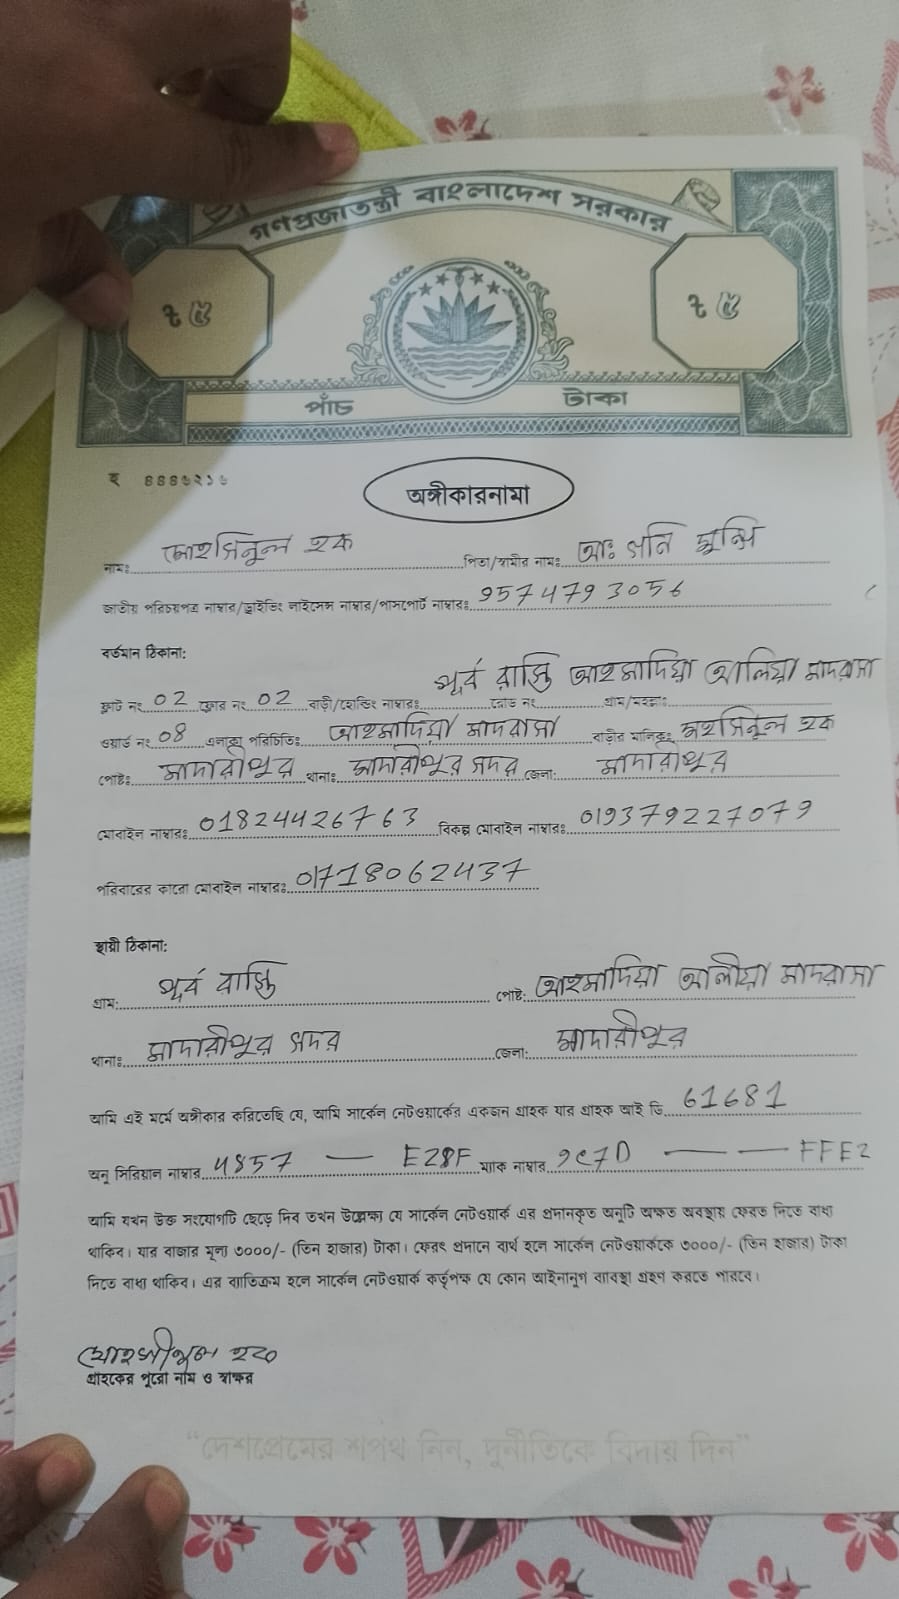 গণপ্রজাতন্ত্রী বাংলাদেশ সরকার
৳ ৫ ৳ ৫
পাঁচ টাকা
অঙ্গীকারনামা
নামঃ মোহসিনুল হক পিতা/স্বামীর নামঃ আঃ গনি মুন্সি
জাতীয় পরিচয়পত্র নাম্বার/ড্রাইভিং লাইসেন্স নাম্বার/পাসপোর্ট নাম্বারঃ 9574793056
বর্তমান ঠিকানা:
ফ্লাট নং 02 ফ্লোর নং 02 বাড়ী/হোল্ডিং নাম্বারঃ রোড নং গ্রাম/মহল্লাঃ পূর্ব রাস্তি আহমাদিয়া আলিয়া মাদরাসা
ওয়ার্ড নং 08 এলাকা পরিচিতিঃ আহমাদিয়া মাদরাসা বাড়ীর মালিকঃ মহসিনুল হক
পোষ্টঃ মাদারীপুর থানাঃ মাদারীপুর সদর জেলা: মাদারীপুর
মোবাইল নাম্বারঃ 01824426763 বিকল্প মোবাইল নাম্বারঃ 019379227079
পরিবারের কারো মোবাইল নাম্বারঃ 01718062437
স্থায়ী ঠিকানা:
গ্রাম: পূর্ব রাস্তি পোষ্ট: আহমাদিয়া আলীয়া মাদরাসা
থানাঃ মাদারীপুর সদর জেলা: মাদারীপুর
আমি এই মর্মে অঙ্গীকার করিতেছি যে, আমি সার্কেল নেটওয়ার্কের একজন গ্রাহক যার গ্রাহক আই ডি 61681
অনু সিরিয়াল নাম্বার 4857 — E28F ম্যাক নাম্বার 9C7D — — FFE2
আমি যখন উক্ত সংযোগটি ছেড়ে দিব তখন উল্লেক্ষ্য যে সার্কেল নেটওয়ার্ক এর প্রদানকৃত অনুটি অক্ষত অবস্থায় ফেরত দিতে বাধ্য
থাকিব। যার বাজার মূল্য ৩০০০/- (তিন হাজার) টাকা। ফেরৎ প্রদানে ব্যর্থ হলে সার্কেল নেটওয়ার্ককে ৩০০০/- (তিন হাজার) টাকা
দিতে বাধ্য থাকিব। এর ব্যতিক্রম হলে সার্কেল নেটওয়ার্ক কর্তৃপক্ষ যে কোন আইনানুগ ব্যবস্থা গ্রহণ করতে পারবে।
মোহসীনুল হক
গ্রাহকের পুরো নাম ও স্বাক্ষর
“দেশপ্রেমের শপথ নিন, দুর্নীতিকে বিদায় দিন”